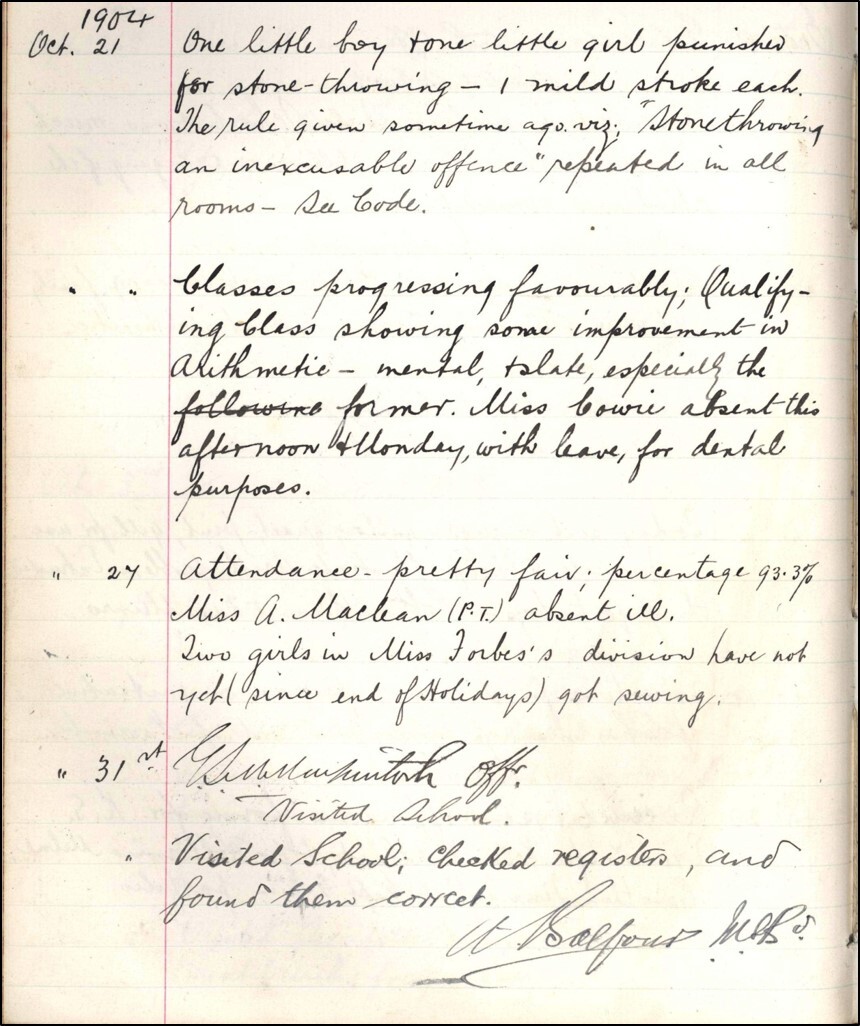 1904
Oct. 21 One little boy & one little girl punished
for stone-throwing – 1 mild stroke each.
The rule given sometime ago. viz; "Stonethrowing
an inexcusable offence" repeated in all
rooms – See Code.
" " Classes progressing favourably; Qualify-
ing Class showing some improvement in
Arithmetic – mental, & slate, especially the
following former. Miss Cowie absent this
afternoon & Monday, with leave, for dental
purposes.
" 27 Attendance – pretty fair; percentage 93.3%
Miss A. Maclean (P.T.) absent ill.
Two girls in Miss Forbes's division have not
yet (since end of Holidays) got sewing.
" 31st Mackintosh Offr.
Visited School.
" Visited School; checked registers, and
found them correct.
Balfour